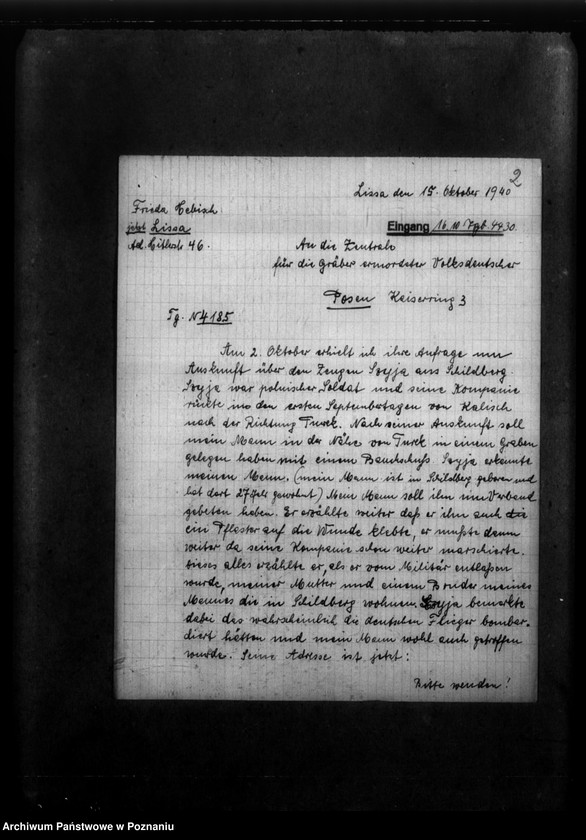 2
Lissa den 15. Oktober 1940
Frieda
jetzt Lissa
Ad. Hitlerstr 46.
Eingang 16.10 Tgb. 4930.
An die Zentrale
für die Gräber ermordeter Volksdeutscher
Posen Kaiserring 3
Tg. N 4185
Am 2. Oktober erhielt ich ihre Anfrage um
Auskunft über den Zeugen Soyja aus Schildberg.
Soyja war polnischer Soldat und seine Kompanie
rückte in den ersten Septembertagen von Kalisch
nach der Richtung Turek. Nach seiner Auskunft soll
mein Mann in der Nähe von Turek in einem Graben
gelegen haben mit einem Bauchschuß Soyja erkannte
meinen Mann. (mein Mann ist in Schildberg geboren und
hat dort 27 Jahr gewohnt) Mein Mann soll ihn um Verband
gebeten haben. Er erzählte weiter daß er ihm auch die
ein Pflaster auf die Wunde klebte, er mußte dann
weiter da seine Kompanie schon weiter marschierte.
dieses alles erzählte er, als er vom Militär entlaßen
wurde, meiner Mutter und einem Bruder meines
Mannes die in Schildberg wohnen. Soyja bemerkte
dabei das wahrscheinlich die deutschen Flieger bombar-
diert hätten und mein Mann wohl auch getroffen
wurde. Seine Adresse ist jetzt:
Bitte wenden!
Archiwum Państwowe w Poznaniu